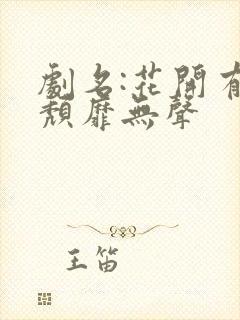 劇名:花開有
頹靡無聲
王笛